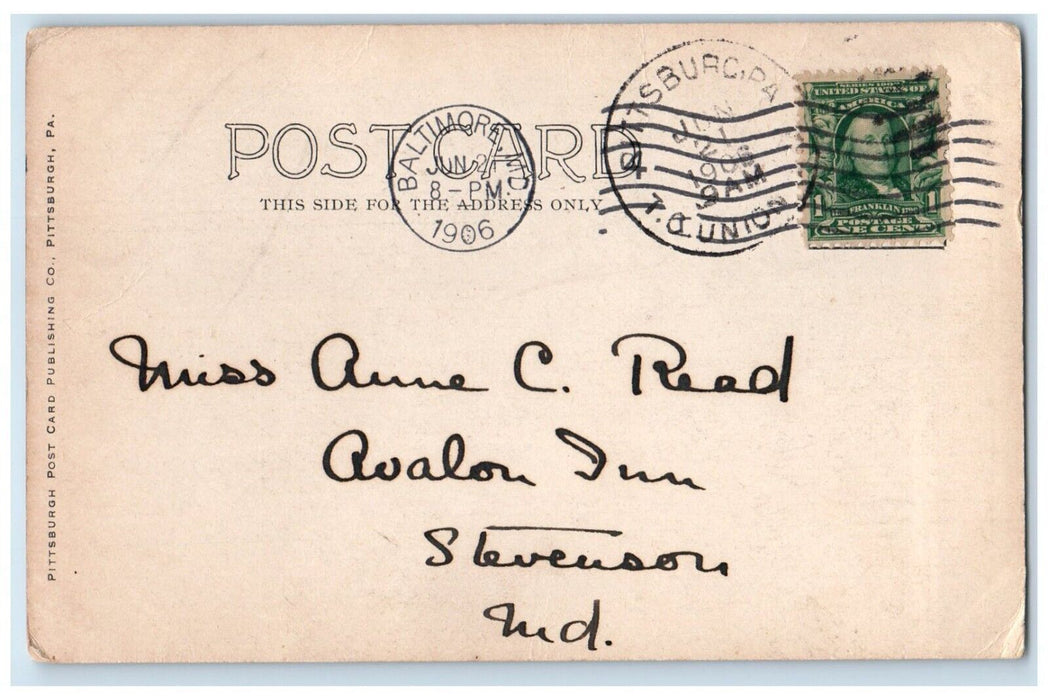 POST CARD
THIS SIDE FOR THE ADDRESS ONLY
BALTIMORE, MD
JUN
8-PM
1906
PITTSBURG, PA
9 AM
T.O. UNION
SERIES 1902
UNITED STATES OF
AMERICA
FRANKLIN
1 POSTAGE 1
ONE CENT
Miss Anne C. Read
Avalon Inn
Stevenson
Md.
PITTSBURGH POST CARD PUBLISHING CO., PITTSBURGH, PA.